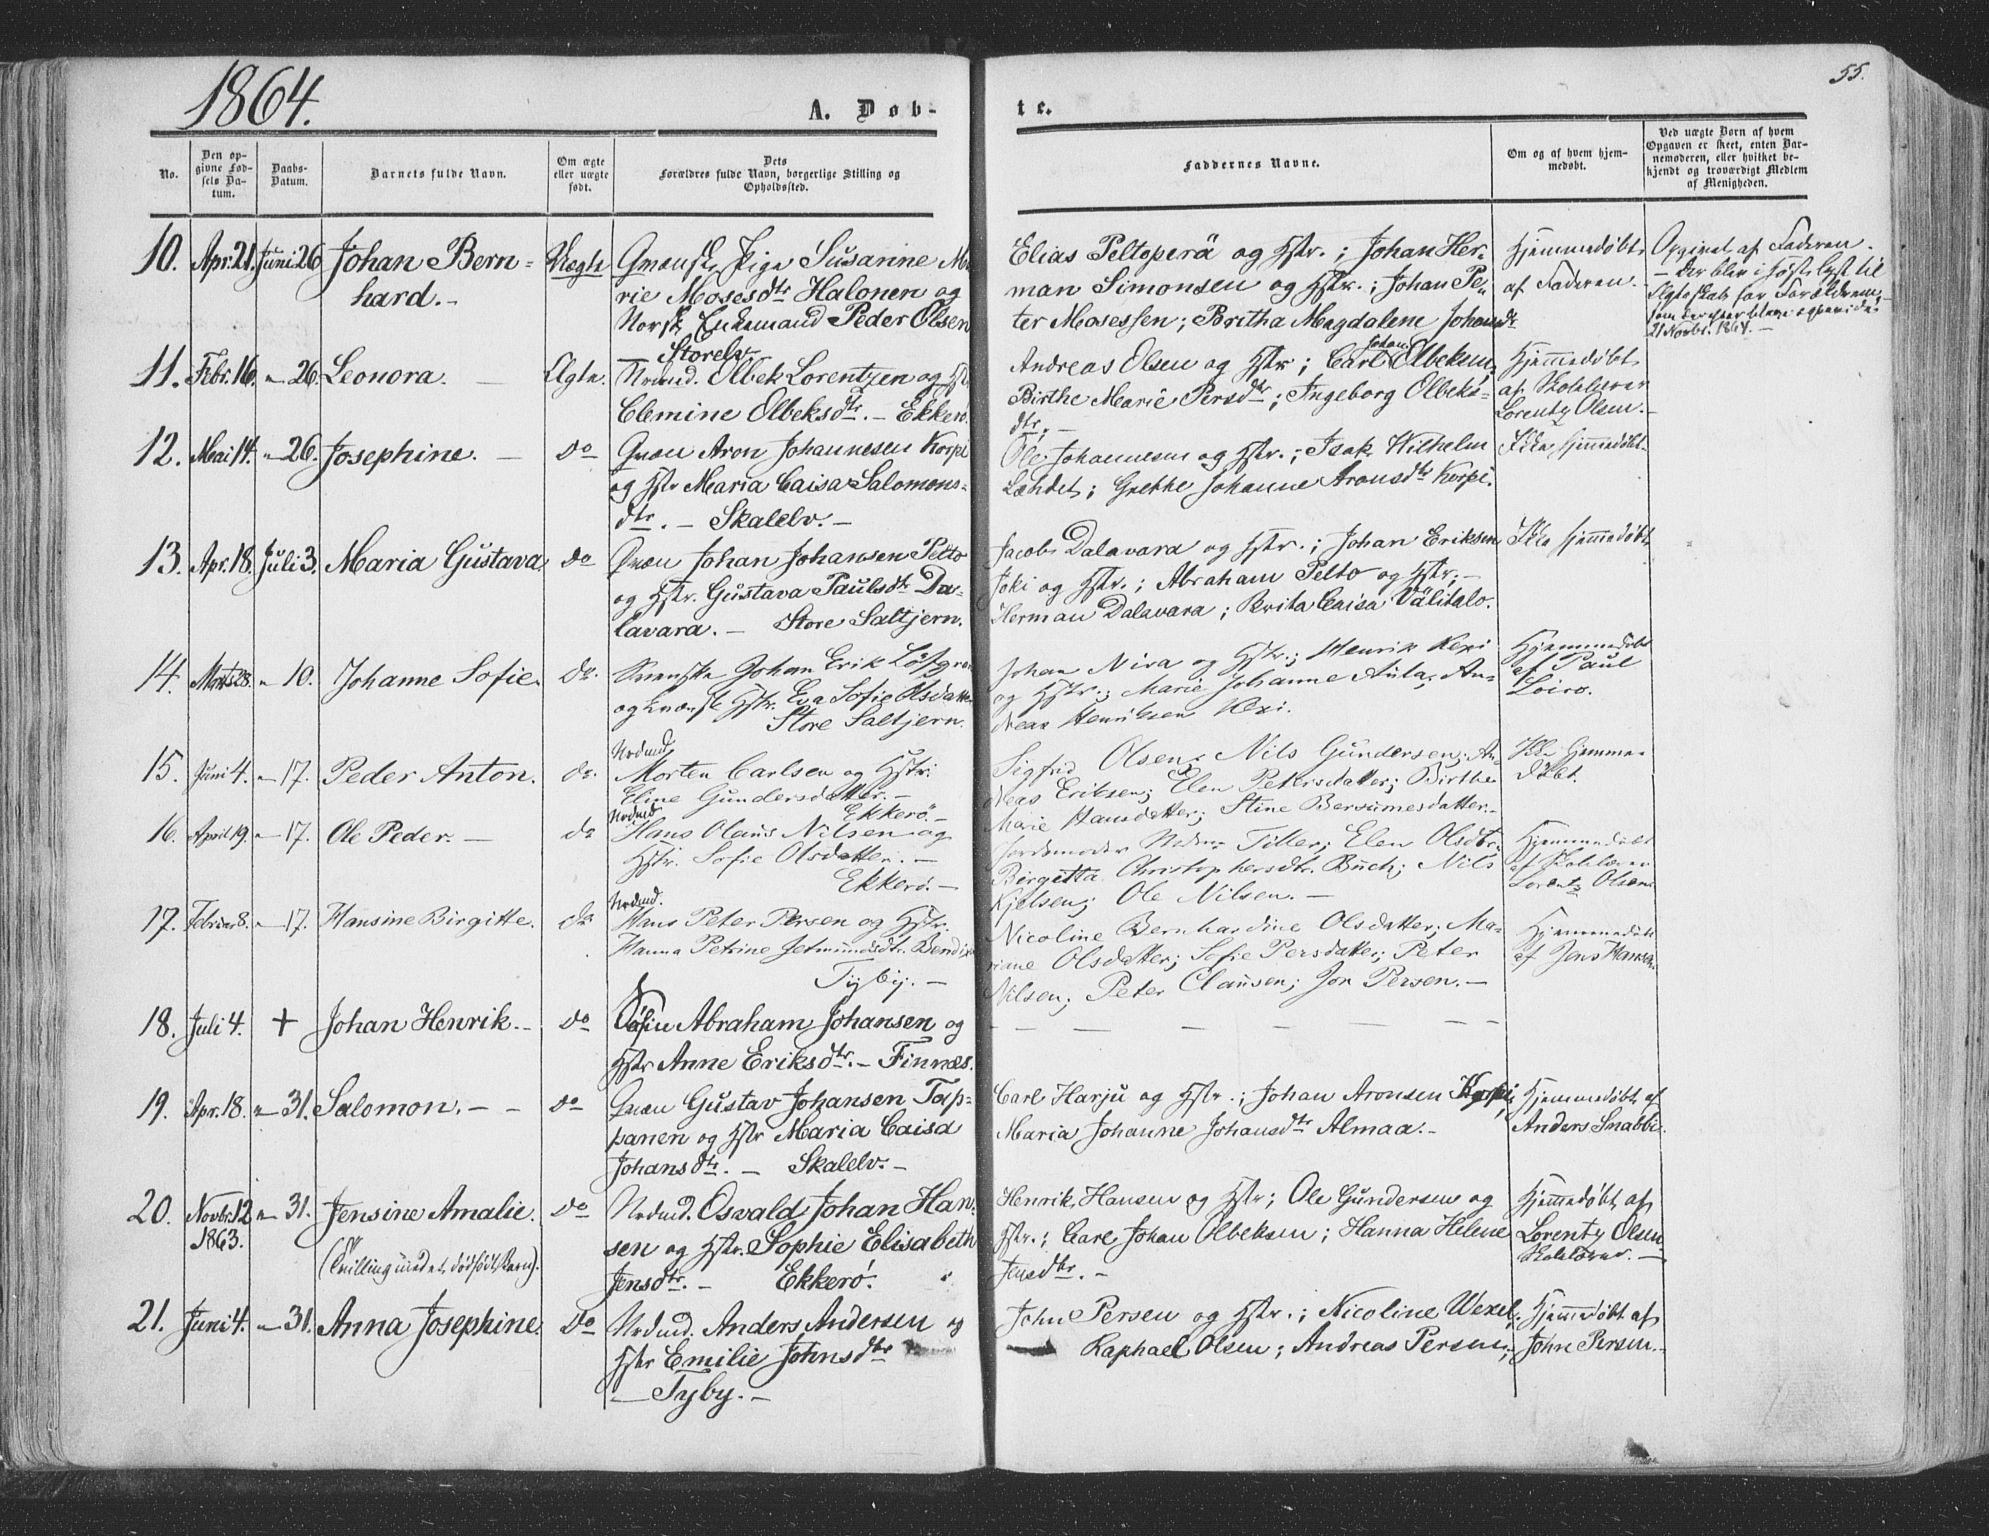 1864.
55.
A. Døb-
te.
No.
Den opgivne Fødsels Datum.
Daabs-Datum.
Barnets fulde Navn.
Om ægte eller uægte født.
Dets Forældres fulde Navn, borgerlige Stilling og Opholdssted.
Faddernes Navne.
Om og af hvem hjemmedøbt.
Ved uægte Børn af hvem Opgaven er skeet, enten Barnemoderen, eller hvilket bekjendt og troværdigt Medlem af Menigheden.
10. Apr. 21. Juni 26 Johan Bern- Uægte Qvænsk Pige Susanne Ma
hard.- rie Mosesdtr Halonen og
Norsk Enkemand Peder Olsen
Storelv.-
Elias Peltoperä og Hstr.; Johan Her-
man Simonsen og Hstr.; Johan Pe-
ter Mosessen; Britha Magdalene Johansdtr
Hjemmedøbt
af Faderen.
Opgivet af Faderen.
- Der blev i Høst lyst til
Ægteskab for Forældrene,
21 Novbr. 1864.-
11. Febr. 16. " 26. Leonora. - Ægte. Nrdmd. Olbek Lorentzen og Hstr
Clemine Olbeksdtr. - Ekkerø.
Andreas Olsen og Hstr; Carl Johan Olbeksen,
Birthe Marie Persdtr; Ingeborg Olbeks-
dtr.-
Hjemmedøbt
af Skolelærer
Lorentz Olsen.-
12. Mai 14. " 26. Josephine. - do Qvæn Aron Johannesen Korpi
og Hstr Maria Caisa Salomons-
dtr. - Skalelv.-
Ole Johannesen og Hstr.; Isak Wilhelm
Læhdet; Grethe Johanne Aronsdtr Korpi.
Ikke hjemmedøbt.
13. Apr. 18. Juli 3. Maria Gustava. do Qvæn Johan Johansen Pelto
og Hstr. Gustava Paulsdtr Da-
lavara. - Store Saltjern.
Jacob Dalavara og Hstr.; Johan Eriksen
Joki og Hstr.; Abraham Pelto og Hstr,-
Herman Dalavara; Brita Caisa Välitalo.
Ikke hjemmedøbt
14. Marts 28. " 10. Johanne Sofie. do. Svenske Johan Erik Löfgren
og kvænsk Hstr. Eva Sofie Olsdatter
Store Saltjern.
Johan Niva og Hstr.; Henrik Kexi
og Hstr.; Marie Johanne Aula; An-
dreas Henriksen Kexi.
Hjemmedøbt
af Paul
Loiro.
15. Juni 4. " 17. Peder Anton. do. Nrdmd
Morten Carlsen og Hstr.
Eline Gundersdatter.-
Ekkerø-
Sigfrid Olsen; Nils Gundersen; An-
dreas Eriksen; Elen Petersdatter; Birthe
Marie Hansdatter; Stine Bersvensdatter.-
Ikke hjemme-
døbt.
16. April 19. " 17. Ole Peder.- do Nrdmd
Hans Olaus Nilsen og
Hstr. Sofie Olsdatter.-
Ekkerø.-
Jordemoder Tiller; Elen Olsdtr
Birgitta Christophersdtr. Buch; Nils
Kjelsen; Ole Nilsen.-
Hjemmedøbt
af Skolelærer
Lorentz Olsen
17. Februar 8. " 17. Hansine Birgitte. do Nrdmd.
Hans Peter Persen og Hstr.
Hanna Petrine Jetmundsdtr. Bendix
Tyby.-
Nicoline Bernhardine Olsdatter; Ma-
riane Olsdatter; Sofie Persdatter; Peter
Nilsen; Peter Clausen; Jon Persen.-
Hjemmedøbt
af Jens Hansen.
18. Juli 4. + Johan Henrik.- do Søfin Abraham Johansen og
Hstr Anne Eriksdtr.- Finnæs.
- - - - - -
19. Apr. 18. " 31. Salomon. - - do Qvæn Gustav Johansen Tap-
panen og Hstr Maria Caisa
Johansdtr. - Skalelv.-
Carl Harju og Hstr.; Johan Aronsen Korpi;
Maria Johanne Johansdtr Almaa.-
Hjemmedøbt af
Anders Snabbi.
20. Novbr. 12 1863. " 31. Jensine Amalie. do Nrdmd. Osvald Johan Han-
(Tvilling med et dødfødt Barn). sen og Hstr. Sophie Elisabeth
Jensdtr.- Ekkerø.
Henrik Hansen og Hstr; Ole Gundersen og
Hstr.; Carl Johan Olbeksen; Hanna Helene
Jensdtr.-
Hjemmedøbt af
Lorentz Olsen
Skolelærer.-
21. Juni 4. " 31. Anna Josephine. do Nrdmd. Anders Andersen og
Hstr Emilie Johnsdtr
- Tyby.-
John Persen og Hstr.; Nicoline Wexel;
Raphael Olsen; Andreas Persen;
Hjemmedøbt af
John Persen.-